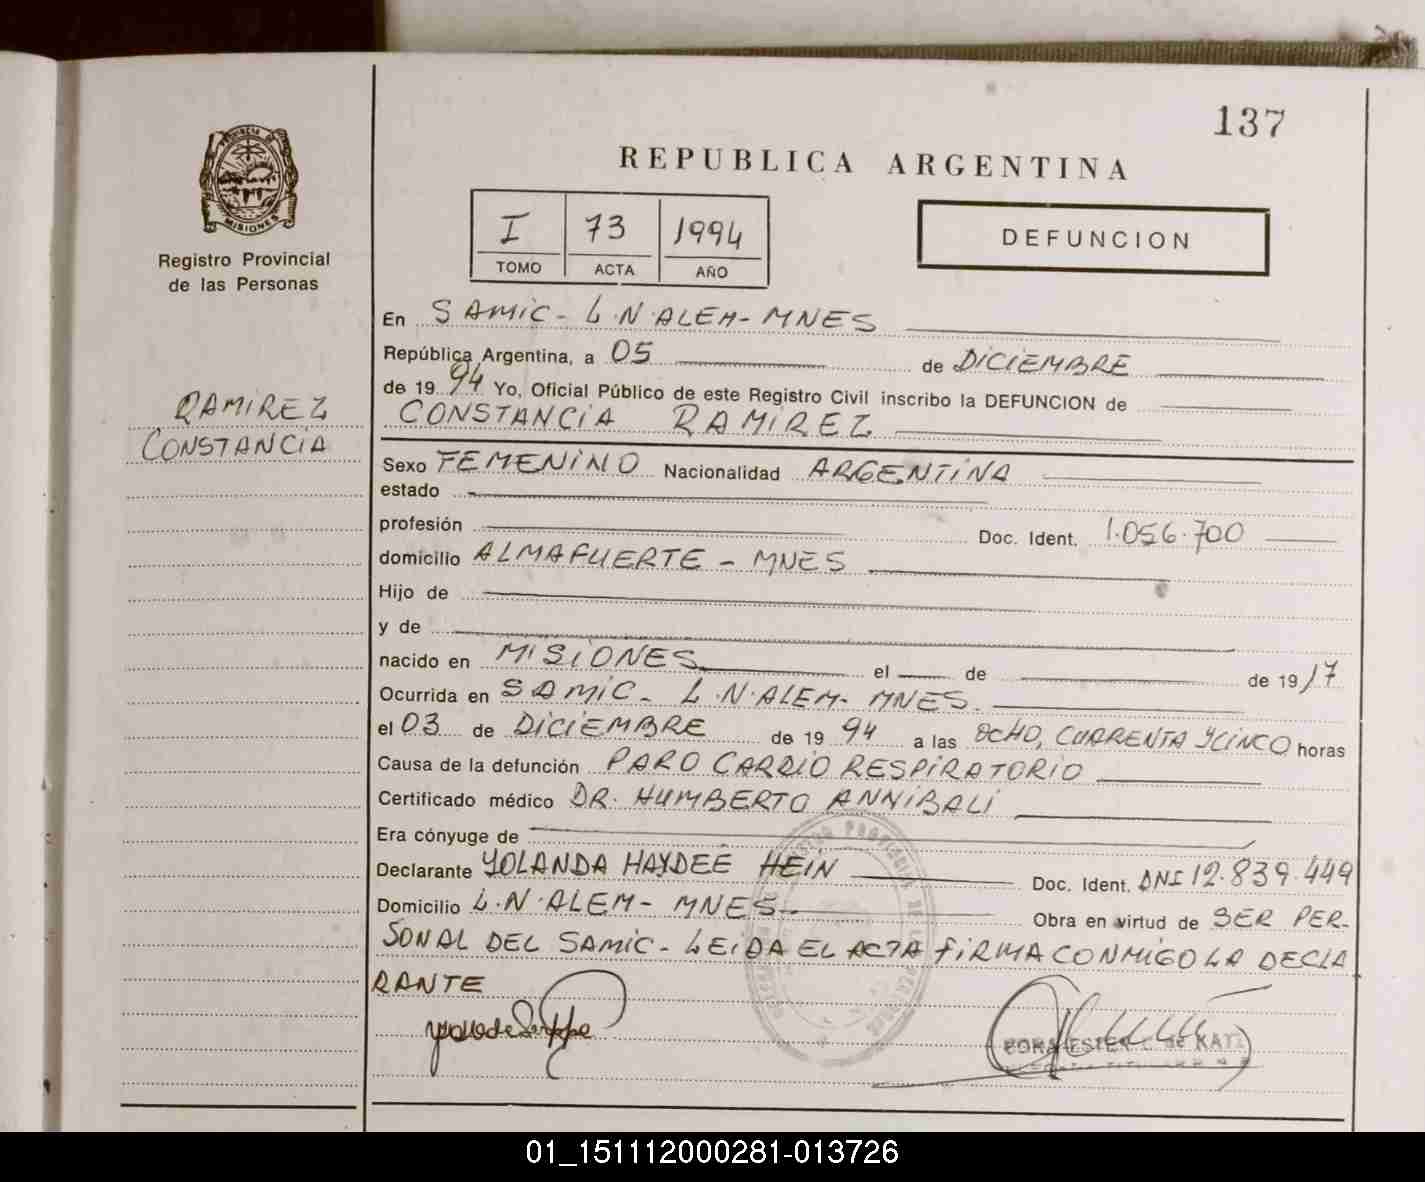 137
REPUBLICA ARGENTINA
PROVINCIA DE
MISIONES
Registro Provincial
de las Personas
I 73 1994
TOMO ACTA AÑO
DEFUNCION
RAMIREZ
CONSTANCIA
En SAMIC - L.N.ALEM - MNES
República Argentina, a 05 de DICIEMBRE
de 19 94 Yo, Oficial Público de este Registro Civil inscribo la DEFUNCION de
CONSTANCIA RAMIREZ
Sexo FEMENINO Nacionalidad ARGENTINA
estado
profesión Doc. Ident. 1.056.700
domicilio ALMAFUERTE - MNES
Hijo de
y de
nacido en MISIONES el de de 19 17
Ocurrida en SAMIC - L.N.ALEM - MNES.
el 03 de DICIEMBRE de 19 94 a las OCHO, CUARENTA Y CINCO horas
Causa de la defunción PARO CARDIO RESPIRATORIO
Certificado médico DR. HUMBERTO ANNIBALI
Era cónyuge de
Declarante YOLANDA HAYDEÉ HEIN Doc. Ident. DNI 12.839.449
Domicilio L.N.ALEM - MNES Obra en virtud de SER PER-
SONAL DEL SAMIC - LEIDA EL ACTA FIRMA CONMIGO LA DECLA
RANTE
ESTER de KATZ
01_151112000281-013726